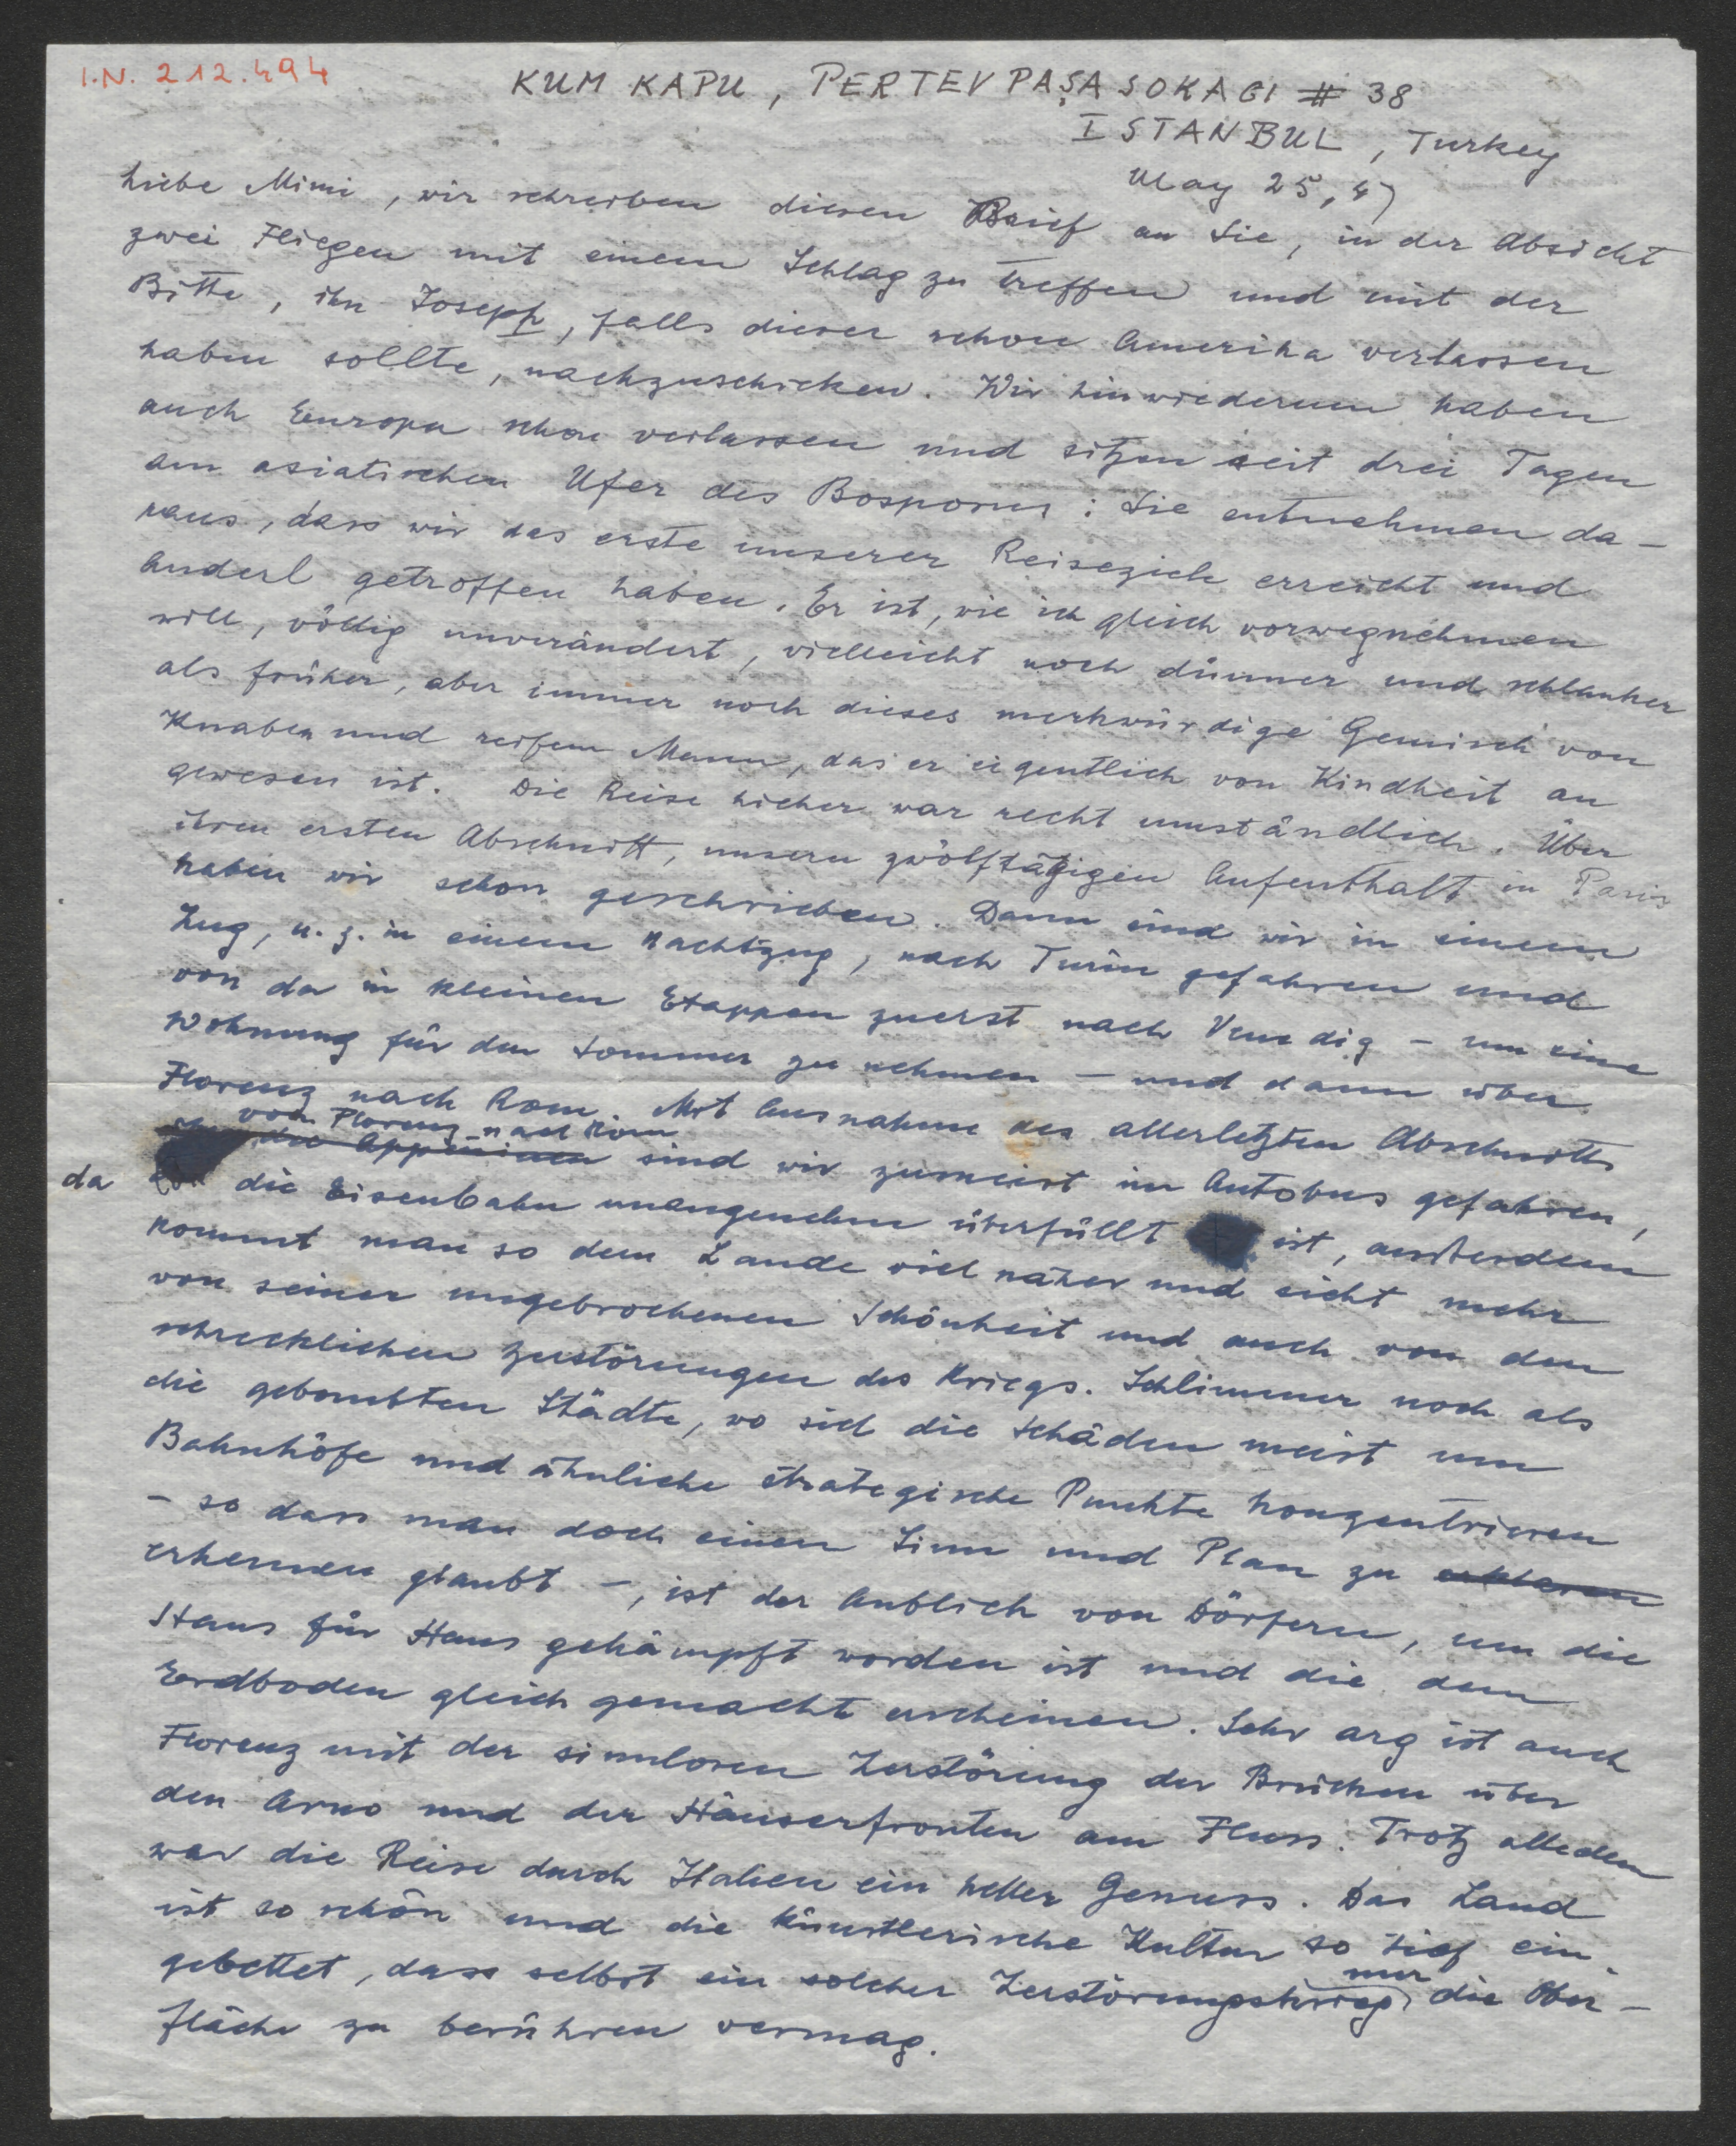 I.N. 212.494
KUM KAPU, PERTEV PAŞA SOKAGI # 38
ISTANBUL, Turkey
May 25, 47
Liebe Mimi, wir schreiben diesen Brief an Sie, in der Absicht
zwei Fliegen mit einem Schlag zu treffen und mit der
Bitte, ihn Joseph, falls dieser schon Amerika verlassen
haben sollte, nachzuschicken. Wir hinwiederum haben
auch Europa schon verlassen und sitzen seit drei Tagen
am asiatischen Ufer des Bosporus: Sie entnehmen da-
raus, dass wir das erste unserer Reiseziele erreicht und
Anderl getroffen haben. Er ist, wie ich gleich vorwegnehmen
will, völlig unverändert, vielleicht noch dünner und schlanker
als früher, aber immer noch dieses merkwürdige Gemisch von
Knaben und reifem Mann, das er eigentlich von Kindheit an
gewesen ist. Die Reise hieher war recht umständlich. Über
ihren ersten Abschnitt, unsern zwölftägigen Aufenthalt in Paris
haben wir schon geschrieben. Dann sind wir in einem
Zug, u. z. in einem Nachtzug, nach Turin gefahren und
von da in kleinen Etappen zuerst nach Venedig – um eine
Wohnung für den Sommer zu nehmen – und dann über
Florenz nach Rom. Mit Ausnahme des allerletzten Abschnitts
von Florenz nach Rom
der Appeninen sind wir zumeist im Autobus gefahren,
da die Eisenbahn unangenehm überfüllt ist, ausserdem
kommt man so dem Lande viel näher und sieht mehr
von seiner ungebrochenen Schönheit und auch von den
schrecklichen Zerstörungen des Kriegs. Schlimmer noch als
die gebombten Städte, wo sich die Schäden meist um
Bahnhöfe und ähnliche strategische Punkte konzentrieren
– so dass man doch einen Sinn und Plan zu erklären
erkennen glaubt –, ist der Anblick von Dörfern, um die
Haus für Haus gekämpft worden ist und die dem
Erdboden gleich gemacht erscheinen. Sehr arg ist auch
Florenz mit der sinnlosen Zerstörung der Brücken über
den Arno und der Häuserfronten am Fluss. Trotz alledem
war die Reise durch Italien ein heller Genuss. Das Land
ist so schön und die künstlerische Kultur so tief ein-
gebettet, dass selbst ein solcher Zerstörungskrieg nur die Ober-
fläche zu berühren vermag.